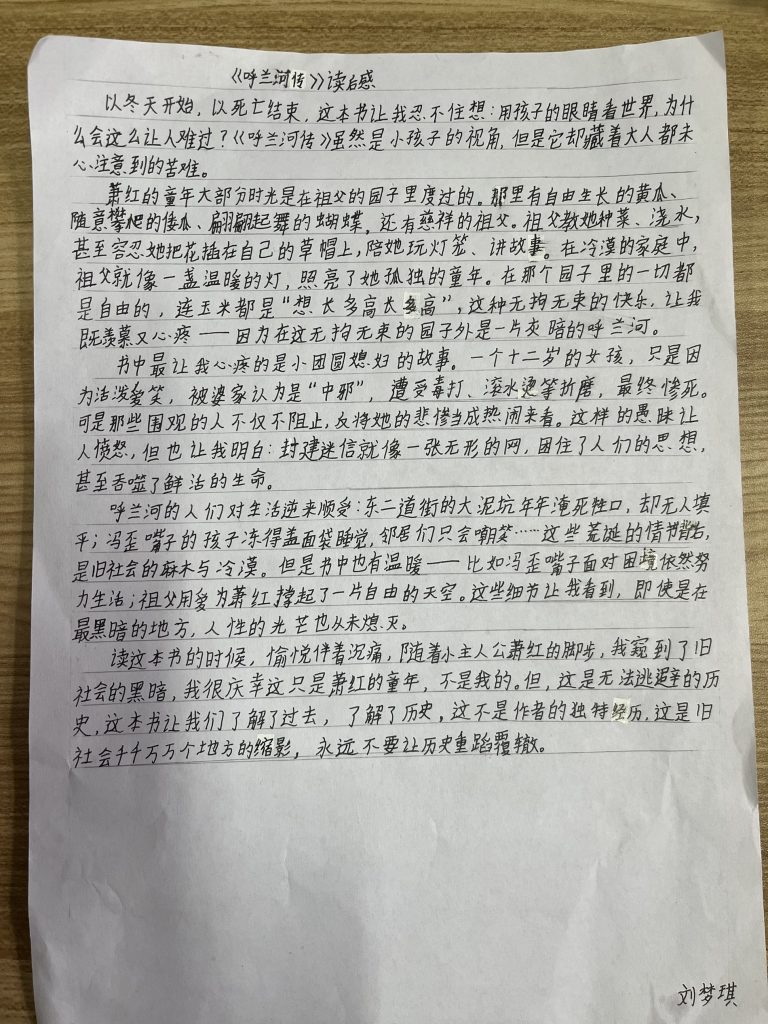 《呼兰河传》读后感
以冬天开始，以死亡结束，这本书让我忍不住想：用孩子的眼睛看世界，为什
么会这么让人难过？《呼兰河传》虽然是小孩子的视角，但是它却藏着大人都未
心注意到的苦难。
萧红的童年大部分时光是在祖父的园子里度过的。那里有自由生长的黄瓜、
随意攀爬的倭瓜、翩翩起舞的蝴蝶，还有慈祥的祖父。祖父教她种菜、浇水，
甚至容忍她把花插在自己的草帽上，陪她玩灯笼、讲故事。在冷漠的家庭中，
祖父就像一盏温暖的灯，照亮了她孤独的童年。在那个园子里的一切都
是自由的，连玉米都是“想长多高长多高”，这种无拘无束的快乐，让我
既羡慕又心疼——因为在这无拘无束的园子外是一片灰暗的呼兰河。
书中最让我心疼的是小团圆媳妇的故事。一个十二岁的女孩，只是因
为活泼爱笑，被婆家认为是“中邪”，遭受毒打、滚水烫等折磨，最终惨死。
可是那些围观的人不仅不阻止，反将她的悲惨当成热闹来看。这样的愚昧让
人愤怒，但也让我明白：封建迷信就像一张无形的网，困住了人们的思想，
甚至吞噬了鲜活的生命。
呼兰河的人们对生活逆来顺受：东二道街的大泥坑年年淹死牲口，却无人填
平；冯歪嘴子的孩子冻得盖面袋睡觉，邻居们只会嘲笑……这些荒诞的情节背后，
是旧社会的麻木与冷漠。但是书中也有温暖——比如冯歪嘴子面对困境依然努
力生活；祖父用爱为萧红撑起了一片自由的天空。这些细节让我看到，即使是在
最黑暗的地方，人性的光芒也从未熄灭。
读这本书的时候，愉悦伴着沉痛，随着小主人公萧红的脚步，我窥到了旧
社会的黑暗，我很庆幸这只是萧红的童年，不是我的。但，这是无法逃避的历
史，这本书让我们了解了过去，了解了历史，这不是作者的独特经历，这是旧
社会千千万万个地方的缩影，永远不要让历史重蹈覆辙。
刘梦琪